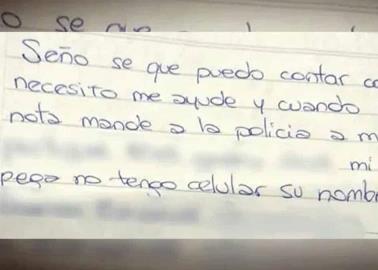 o se
Seño se que puedo contar co
necesito me ayude y cuando
nota mande a la policia a m
mi
pega no tengo celular su nomb